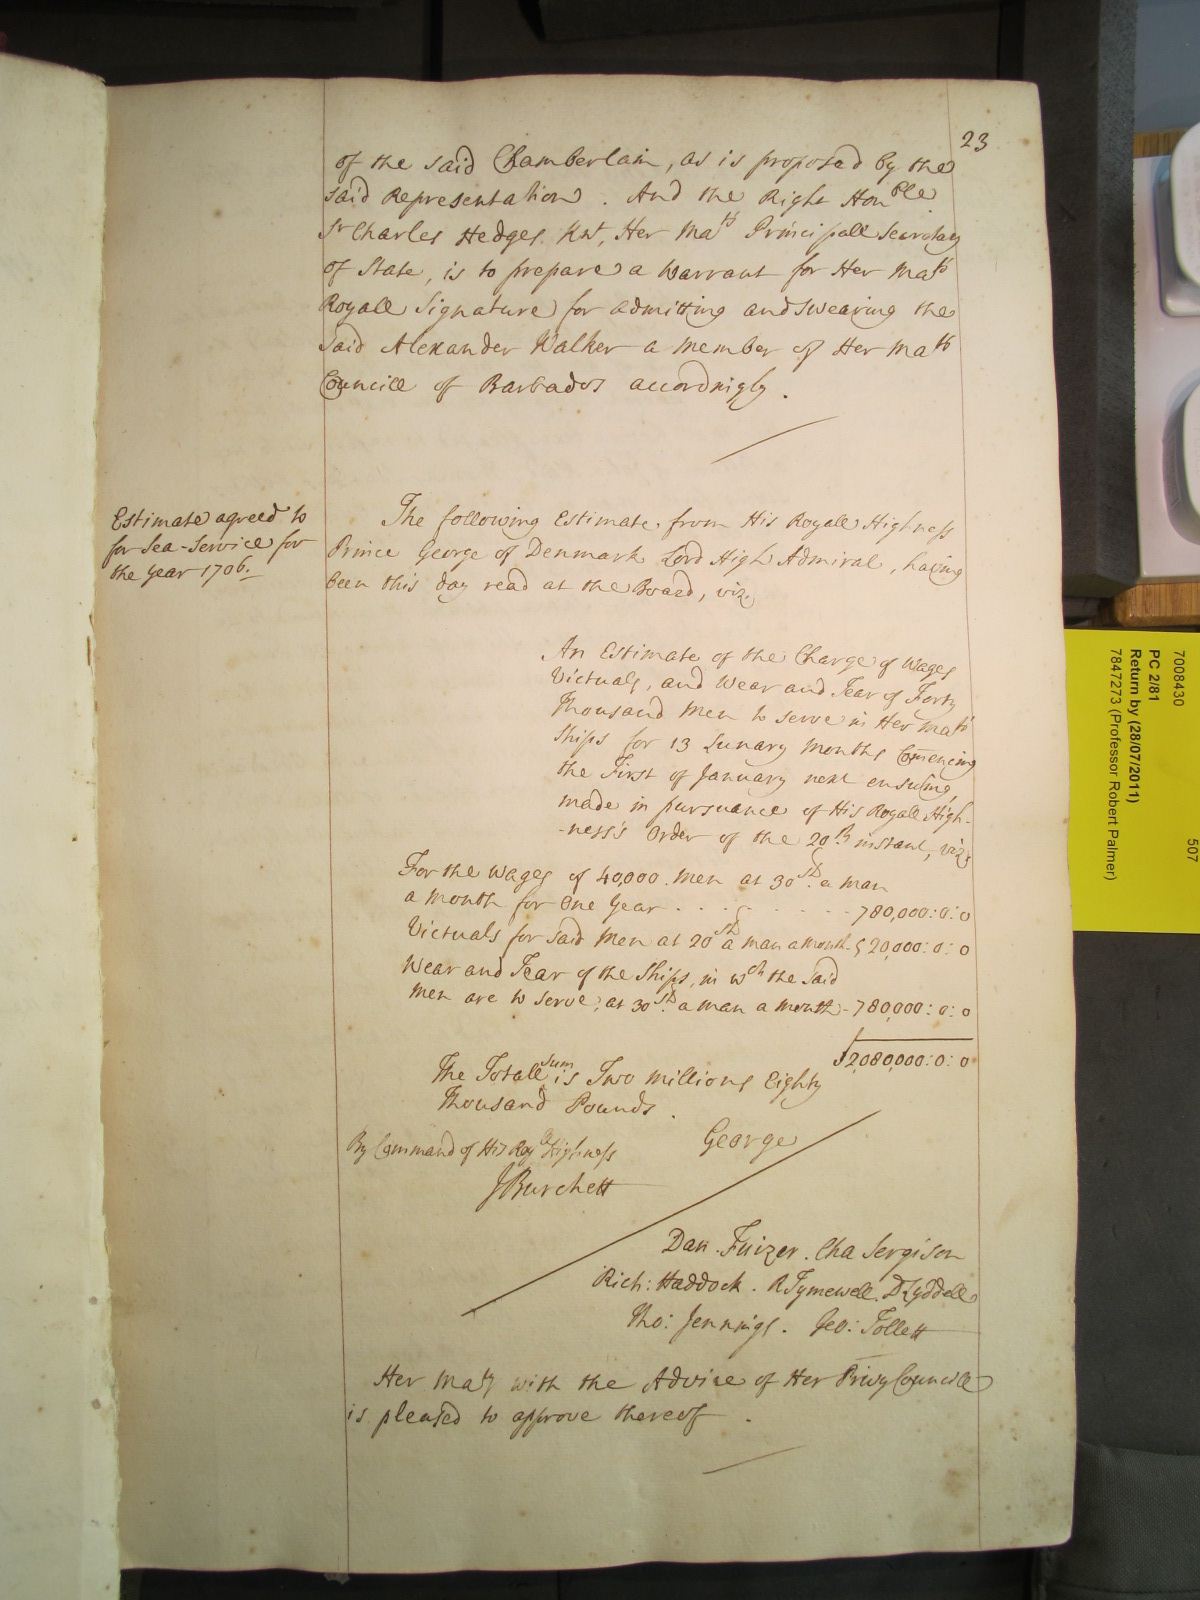 23
of the said Chamberlain, as is proposed by the
said Representation. And the Right Honble
Sr Charles Hedges Knt, Her Mats Principall Secretary
of State, is to prepare a Warrant for Her Mats
Royall Signature for admitting and Swearing the
said Alexander Walker a Member of Her Mats
Councill of Barbados accordingly.
Estimate agreed to
for Sea-Service for
the year 1706.
The following Estimate from His Royall Highness
Prince George of Denmark Lord High Admiral, having
been this day read at the Board, viz.
An Estimate of the Charge of Wages
Victuals, and Wear and Tear of Forty
Thousand Men to serve in Her Mats
Ships for 13 Lunary Months Comencing
the First of January next ensuing,
made in pursuance of His Royall High-
-ness's Order of the 20th instant, viz.
For the Wages of 40,000 Men at 30sh. a man
a Month for One Year . . . . . . . 780,000:0:0
Victuals for said Men at 20sh a man a month - 520,000:0:0
Wear and Tear of the Ships, in wch the said
Men are to serve, at 30sh. a man a month - 780,000:0:0
£2,080,000:0:0
The Totall sum is Two Millions Eighty
Thousand Pounds.
George
By Command of His Royll Highness
J Burchett
Dan. Furzer. Cha Sergison
Rich: Haddock. R Tymewell. D Lyddell
Tho: Jennings. Geo: Tollett
Her Maty with the Advice of Her Privy Councill
is pleased to approve thereof.
7008430
507
PC 2/81
Return by (28/07/2011)
7847273 (Professor Robert Palmer)